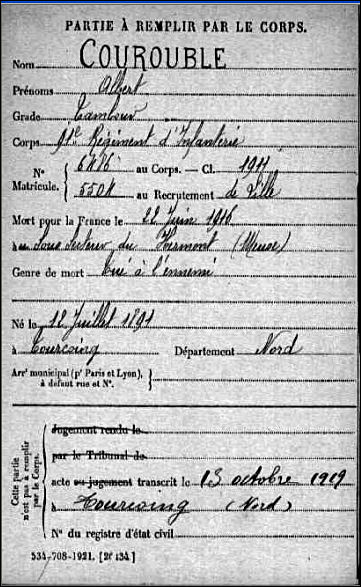 PARTIE À REMPLIR PAR LE CORPS.
Nom COUROUBLE
Prénoms Albert
Grade Tambour
Corps 91e Régiment d'Infanterie
N° Matricule. { 6476 au Corps. — Cl. 1911
5504 au Recrutement de Lille
Mort pour la France le 22 Juin 1916
à au Sous Secteur du (Meuse)
Genre de mort Tué à l'ennemi
Né le 12 Juillet 1891
à Tourcoing Département Nord
Arrt municipal (pr Paris et Lyon), à défaut rue et N°.
Cette partie n'est pas à remplir par le Corps.
Jugement rendu le
par le Tribunal de
acte ou jugement transcrit le 13 octobre 1919
à Tourcoing (Nord)
N° du registre d'état civil
534-708-1921. [26434]